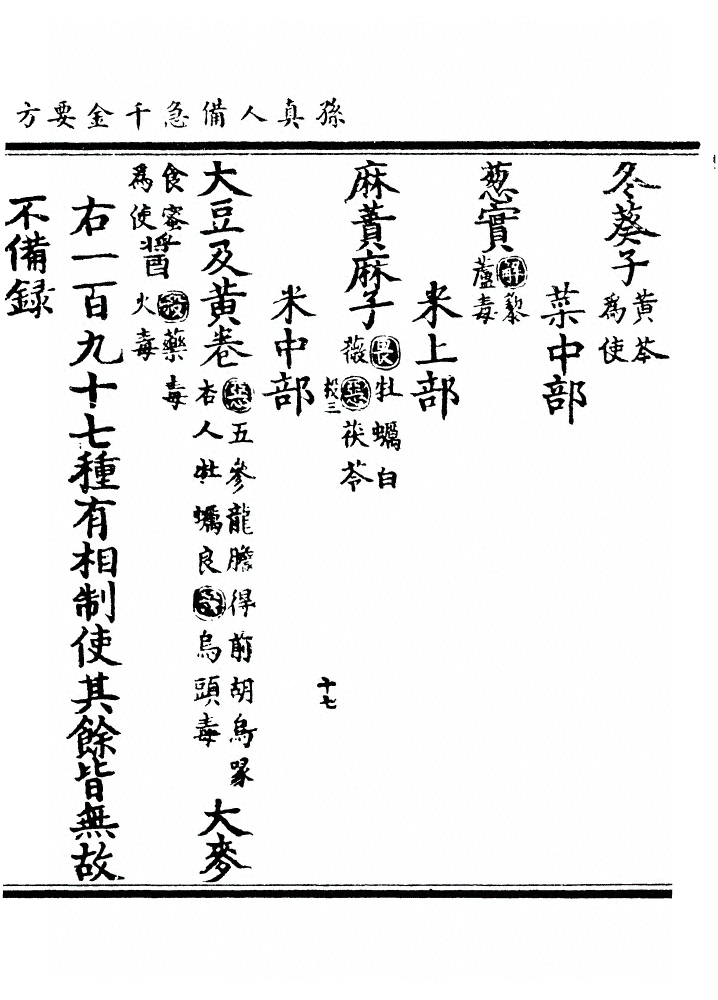 孫真人備急千金要方
冬葵子黃芩爲使
菜中部
葱實解藜蘆毒
米上部
麻蕡麻子畏牡蠣白薇惡茯苓
𣪠三
十七
米中部
大豆及黃卷惡五參龍膽得前胡烏喙杏人牡蠣良殺烏頭毒 大麥
食蜜爲使醬殺藥毒火毒
右一百九十七種有相制使其餘皆無故
不備録